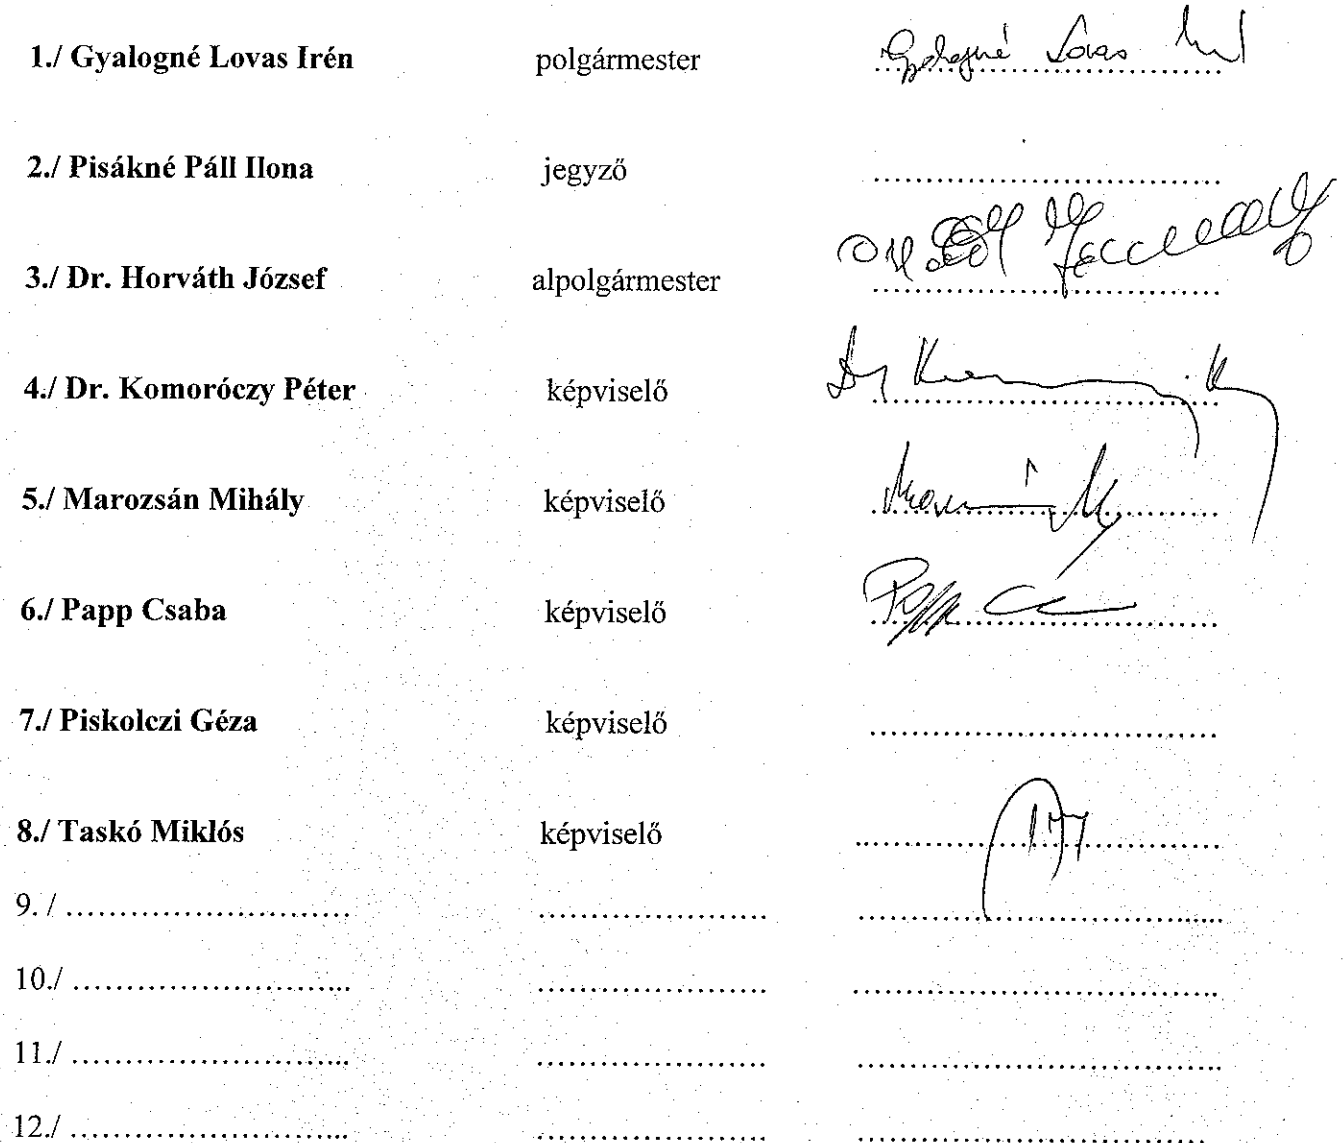 1./ Gyalogné Lovas Irén polgármester Gyalogné Lovas Irén
2./ Pisákné Páll Ilona jegyző ..............................
3./ Dr. Horváth József alpolgármester ..............................
4./ Dr. Komoróczy Péter képviselő ..............................
5./ Marozsán Mihály képviselő ..............................
6./ Papp Csaba képviselő Papp
7./ Piskolczi Géza képviselő ..............................
8./ Taskó Miklós képviselő ..............................
9. / .......................... ..................... ..............................
10./ .......................... ..................... ..............................
11./ .......................... ..................... ..............................
12./ .......................... ..................... ..............................